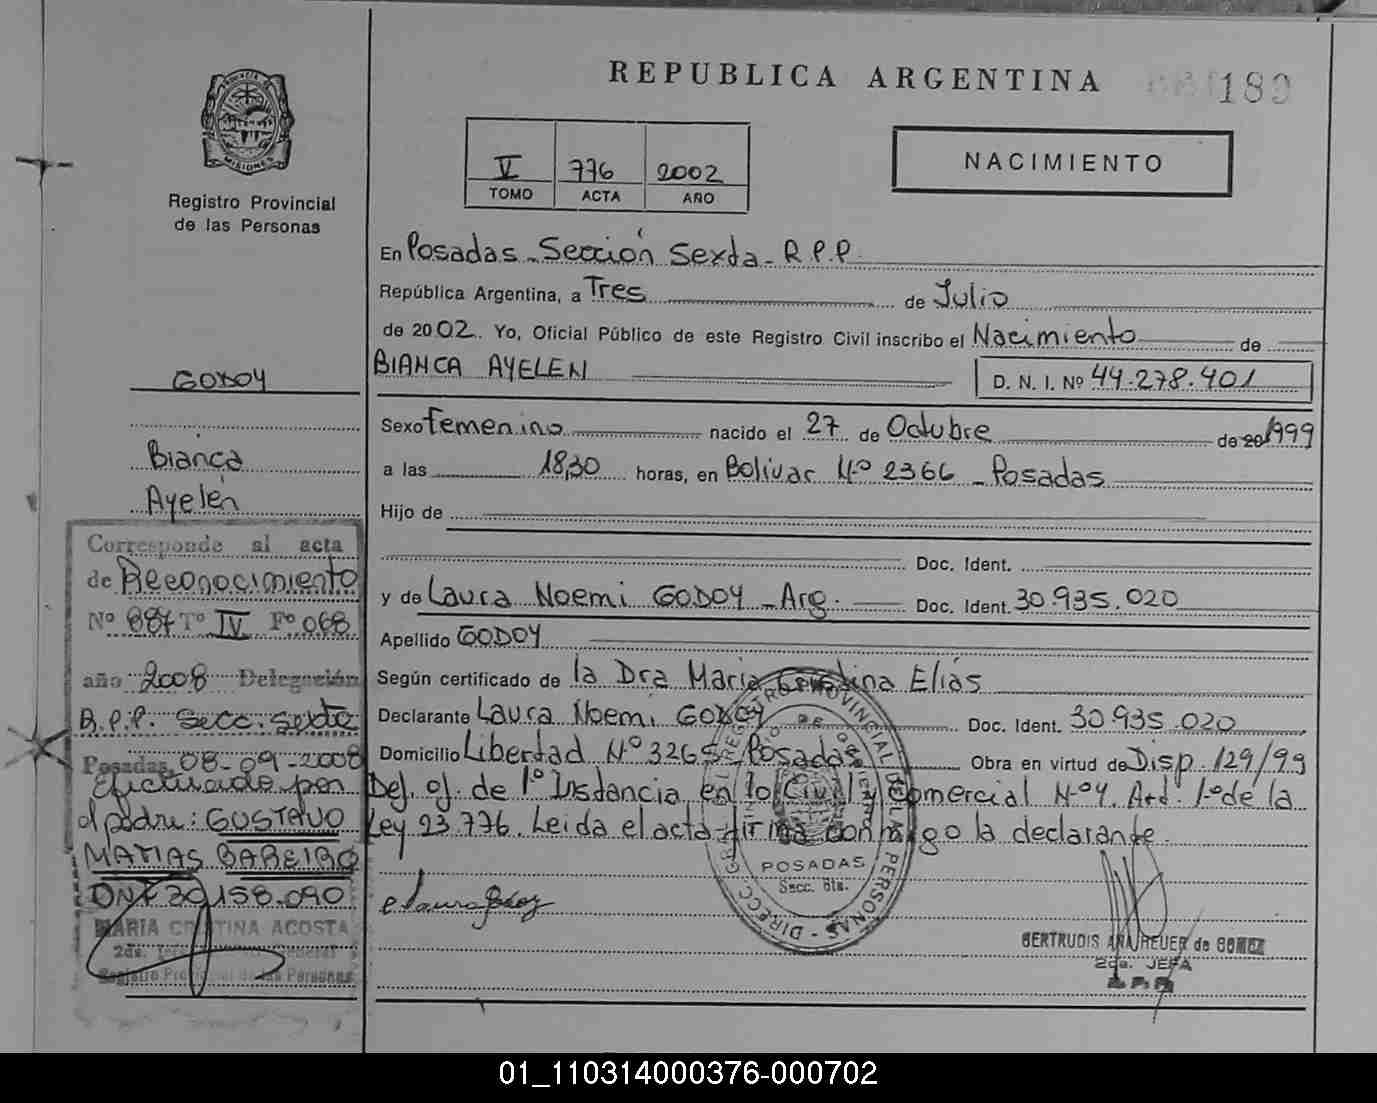 REPUBLICA ARGENTINA
189
MISIONES
Registro Provincial
de las Personas
V 776 2002
TOMO ACTA AÑO
NACIMIENTO
En Posadas - Sección Sexta - R.P.P.
República Argentina, a Tres de Julio
de 2002. Yo, Oficial Público de este Registro Civil inscribo el Nacimiento de
BIANCA AYELEN D. N. I. Nº 44.278.401
Sexo Femenino nacido el 27 de Octubre de 20 1999
a las 18,30 horas, en Bolivar Nº 2366 - Posadas
Hijo de
Doc. Ident.
y de Laura Noemi GODOY - Arg. Doc. Ident. 30.935.020
Apellido GODOY
Según certificado de la Dra Maria Cristina Elías
Declarante Laura Noemi GODOY Doc. Ident. 30.935.020
Domicilio Libertad Nº 3265 Posadas Obra en virtud de Disp. 129/99
Def. of. de 1º Instancia en lo Civil y Comercial Nº 4. Art. 1º de la
Ley 23.776. Leida el acta firma conmigo la declarante.
GODOY
Bianca
Ayelén
Corresponde al acta
de Reconocimiento
Nº 887 Tº IV Fº 068
año 2008 Delegación
R.P.P. Secc. Sexta
Posadas, 08-09-2008
Efectuado por
el padre: GUSTAVO
MATIAS BAREIRO
DNI 30.158.090
MARIA CRISTINA ACOSTA
Registro Provincial de las Personas
POSADAS
Secc. 6ta.
GERTRUDIS ANA HEUER de GOMEZ
2da. JEFA
01_110314000376-000702